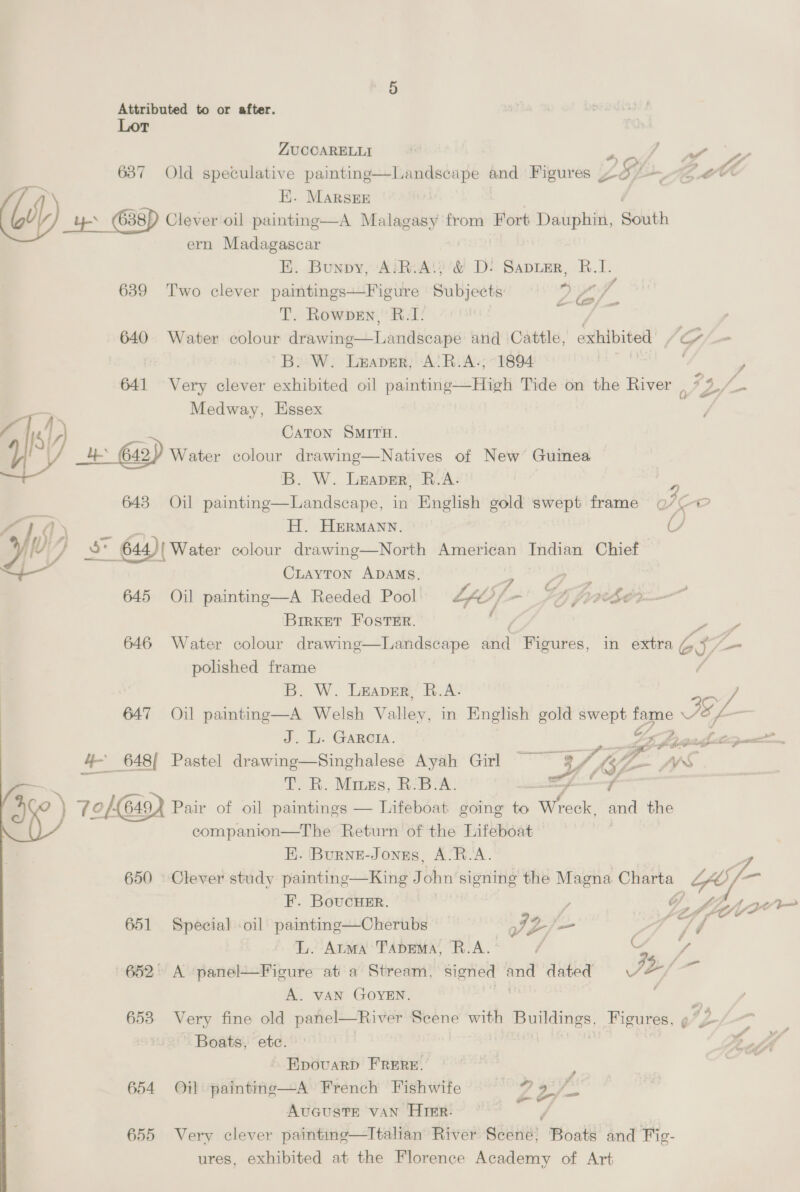 5
Attributed to or after.
Lot
ZUCCARELLI
637 Old speculative painting—Landscape and Figures 25/-
E. MARSEE
4 638) Clever oil painting—A Malagasy from Fort Dauphin, South
ern Madagascar
E. BUNDY, A.R.A., & D. SADLER, R.I.
639 Two clever paintings—Figure Subjects
T. ROWDEN, R.I.
640 Water colour drawing—Landscape and Cattle, exhibited
B. W. LEADER, A.R.A., 1894
641 Very clever exhibited oil painting—High Tide on the River 72/-
Medway, Essex
CATON SMITH.
4 642) Water colour drawing—Natives of New Guinea
B. W. LEADER, R.A.
643 Oil painting—Landscape, in English gold swept frame
H. HERMANN.
5 644) Water colour drawing—North American Indian Chief
CLAYTON ADAMS.
645 Oil painting—A Reeded Pool
BIRKET FOSTER.
646 Water colour drawing—Landscape and Figures, in extra 65/-
polished frame
B. W. LEADER, R.A.
647 Oil painting—A Welsh Valley, in English gold swept frame
J. L. GARCIA.
4 648 Pastel drawing—Singhalese Ayah Girl
T. R. MILES, R.B.A.
70/ 649) Pair of oil paintings — Lifeboat going to Wreck, and the
companion—The Return of the Lifeboat
E. BURNE-JONES, A.R.A.
650 Clever study painting—King John signing the Magna Charta
F. BOUCHER.
651 Special oil painting—Cherubs 72/-
L. ALMA TADEMA, R.A.
652 A panel—Figure at a Stream, signed and dated
A. VAN GOYEN.
653 Very fine old panel—River Scene with Buildings, Figures,
Boats, etc.
EDOUARD FRERE.
654 Oil painting—A French Fishwife 22/-
AUGUSTE VAN HIER.
655 Very clever painting—Italian River Scene, Boats and Fig-
ures, exhibited at the Florence Academy of Art